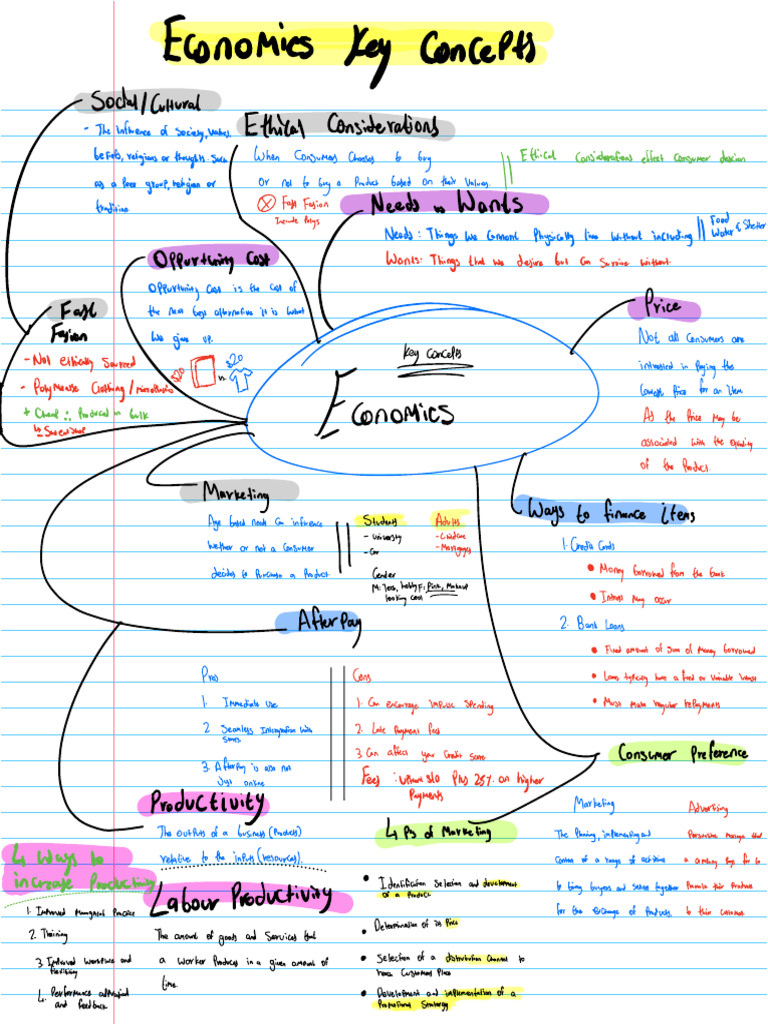 Economics Key Concepts
Social/Cultural
- The influence of society, values,
beliefs, religions or thoughts. Such
as a peer group, religion or
tradition.
Ethical Considerations
When Consumers Chooses to buy
or not to buy a Product based on their Values.
Fast Fasion
Ethical Considerations effect Consumer desicion
Needs vs Wants
Needs: Things We Cannot Physically live Without including
Food
Water & Shelter
Wants: Things that we desire but can Survive without
Oppurtuniny Cost
Oppurtuniny Cost is the cost of
the next best alternative it is what
We give up.
$20
vs
$20
Fast
Fasion
- Not ethically Sourced
- Polymouse Clothing/
+ Cheap ∴ Produced in bulk
↳
Price
Not all Consumers are
intrested in Paying the
lowest Price for an item
As the Price may be
associated with the Quality
of the Product
Key Concepts
Economics
Marketing
Age based needs Can influence
Wether or not a Consumer
decides to Purchase a Product
Students
- University
- Car
Adults
- Childcare
- Mortgages
Gender
looking cool
Ways to finance items
1. Credit Cards
• Money borrowed from the bank
• Intrest may occur
2. Bank Loans
• Fixed amount of Sum of Money borrowed
• Loans typically have a fixed or Variable
• Must Make regular rePayments
After Pay
Pros
1. Immediate Use
2. Seamless Intergration With
Stores
3. AfterPay is also not
Just online
Cons
1. Can encourage impulse Spending
2. Late Payment fees
3. Can affect your Credit Score
Fees: upfront $10 Plus 25% on higher
Payments
Consumer Preference
Marketing
The Planning, implementing and
Control of a range of activities
to bring buyers and Sellers together
for the exchange of Products
Advertising
Persuasive message that
a company Pays for to
Promote their Products
to their customer
Productivity
The outputs of a business (Products)
relative to the inputs (resources).
4 Ps of Marketing
• Identification Selection and development
of a Product
• Determination of its Price
• Selection of a distribution Channel to
reach Customers Place
• Development and implementation of a
Promotional Strategy
4 Ways to
increase Productivity
1. Improved Management Practice
2. Training
3. Improved Workplace and
flexibility
4. Performance appraisal
and feedback
Labour Productivity
The amount of goods and Services that
a worker Produces in a given amount of
time.